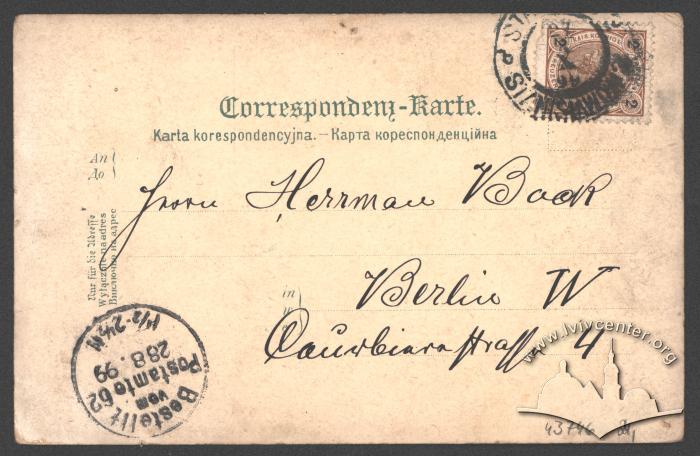 Correspondenz-Karte.
Karta korespondencyjna. — Карта кореспонденційна
An
До
Herrn Herrman Bock
Nur für die Adresse
Wyłącznie na adres
Виключно на адрес
in
Berlin W
Courbierestrasse 4
2
2
Bestellt
vom
Postamte 62
28.8.99
1½-2¼N
43746
www.lvivcenter.org